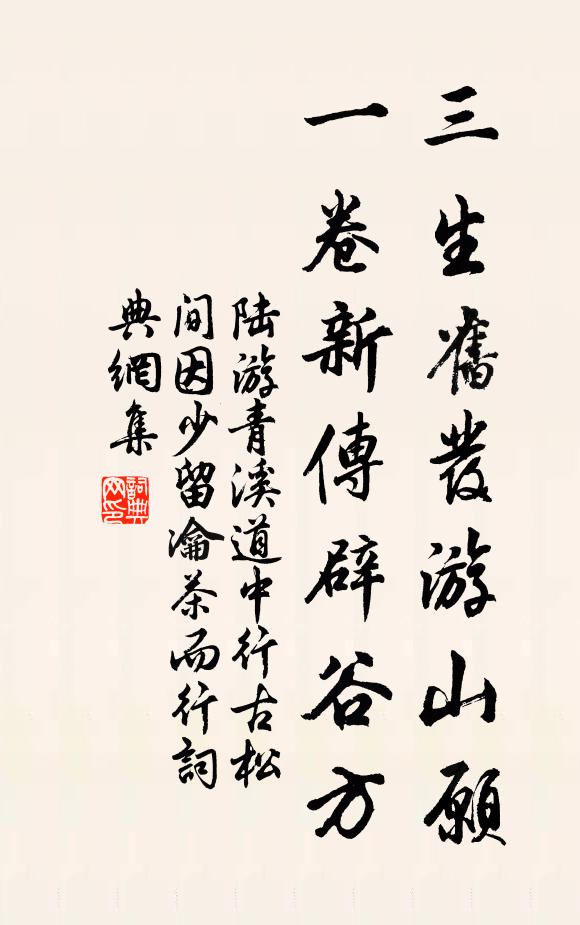 三生舊發游山願
一卷新傳辟谷方
陆游青溪道中行古松
间因少留瀹茶而行詞
典網集
詞典
网印